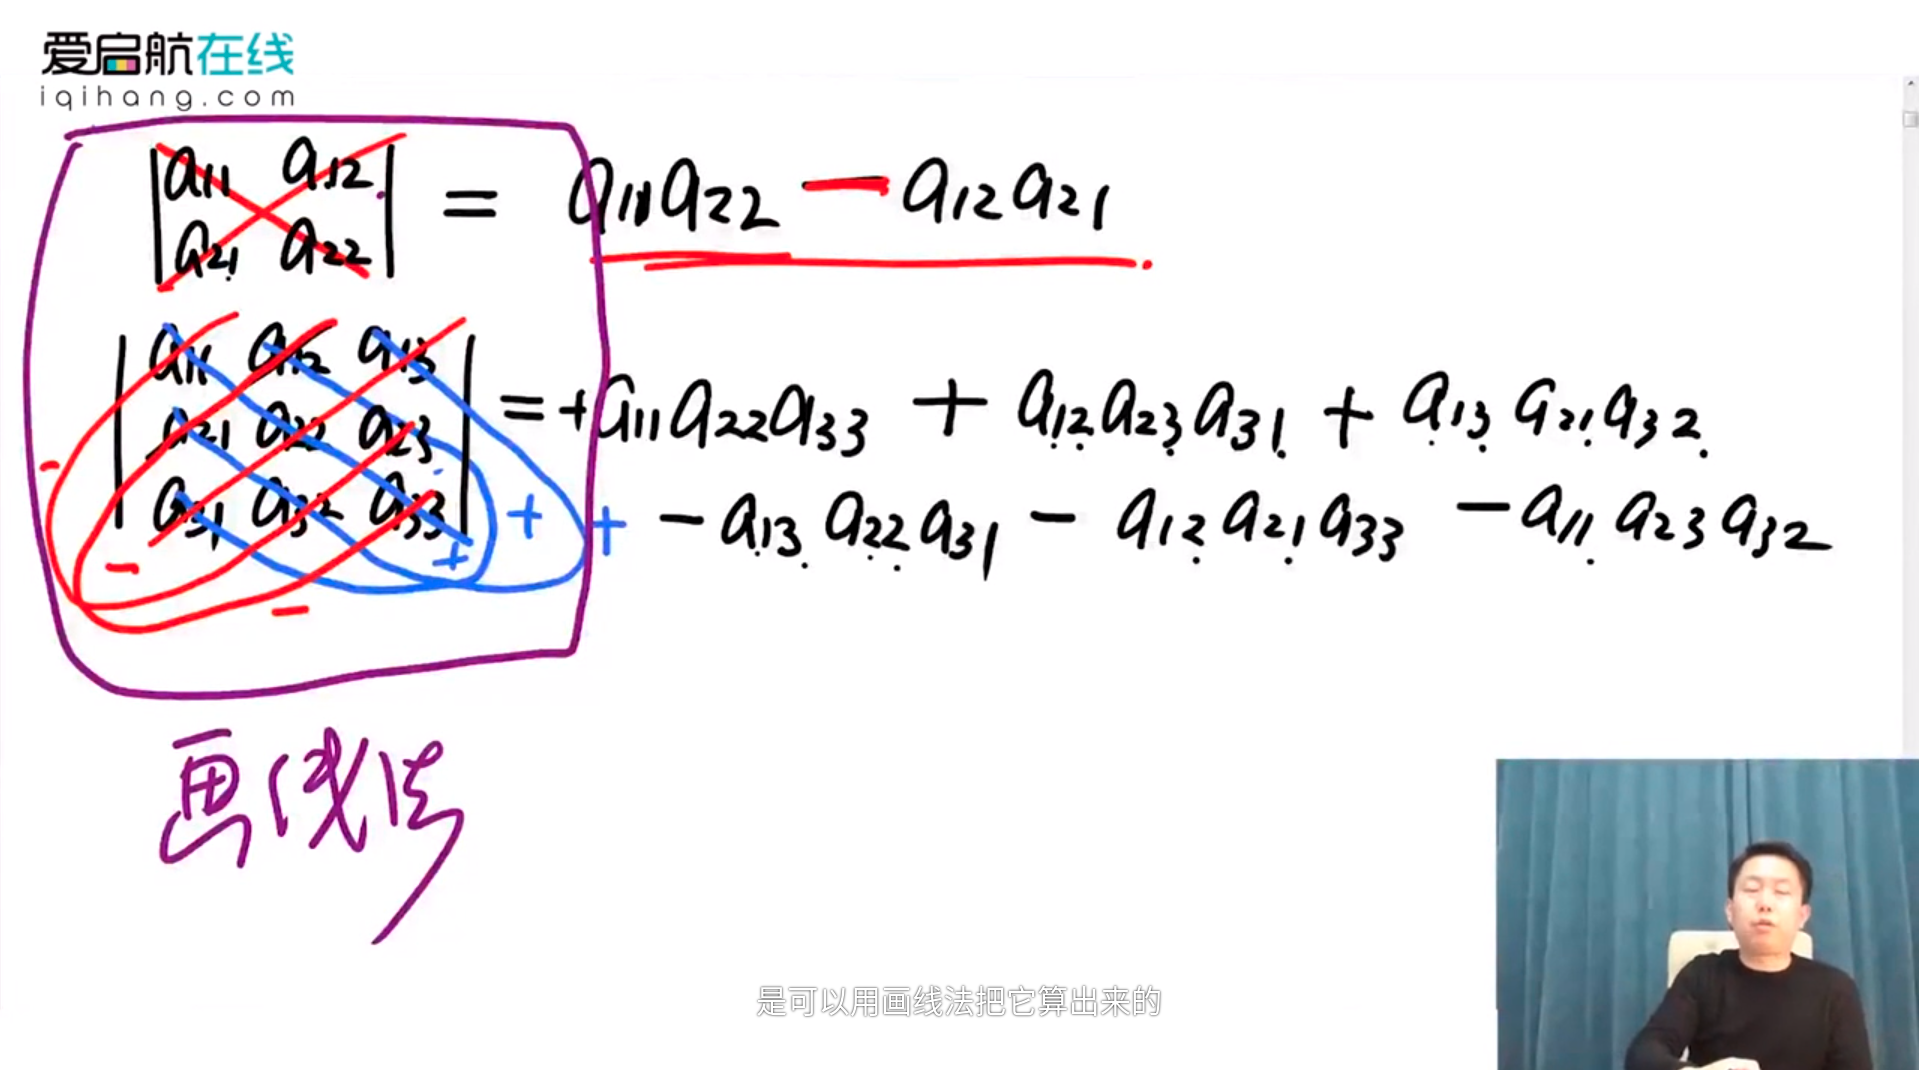 爱启航在线
iqihang.com
|a11 a12| = a11a22 - a12a21
|a21 a22|
|a11 a12 a13|
|a21 a22 a23| = +a11a22a33 + a12a23a31 + a13a21a32
|a31 a32 a33| - a13a22a31 - a12a21a33 - a11a23a32
- - - + + +
画线法
是可以用画线法把它算出来的